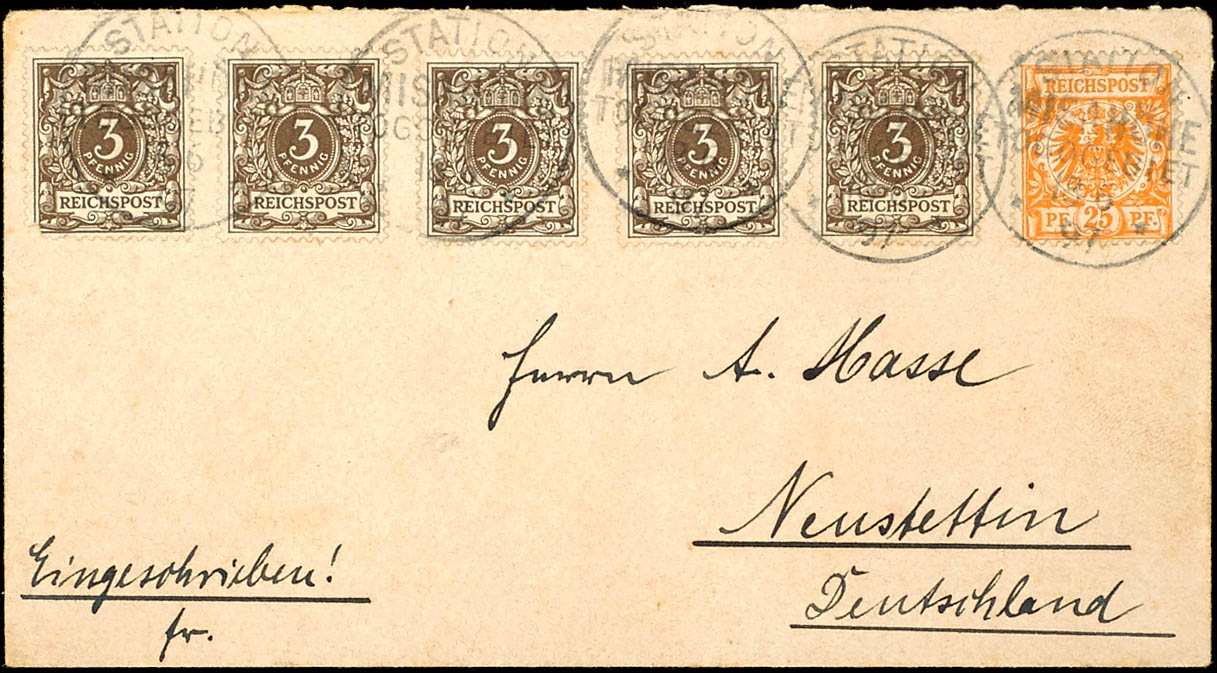 STATION
STATION
STATION
STATION
STATION
3 PFENNIG REICHSPOST
3 PFENNIG REICHSPOST
3 PFENNIG REICHSPOST
3 PFENNIG REICHSPOST
3 PFENNIG REICHSPOST
REICHSPOST
PF. 25 PF.
97
97
Herrn A. Masse
Neustettin
Deutschland
Eingeschrieben!
fr.